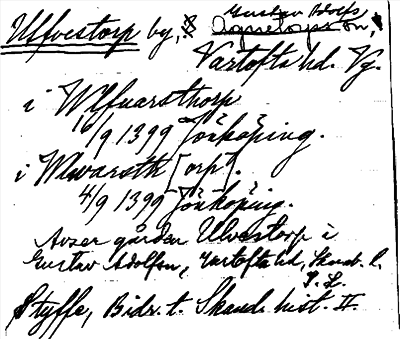 Gustav Adolfs
Ulfvestorp by, Agnetorps sn,
Vartofta hd. Vg.
i Wlfuarsthorp
16/9 1399 Jönköping.
i Wlwarsth [orp].
4/9 1399 Jönköping.
Avser gården Ulvestorp i
Gustav Adolfsn, Vartofta hd, Skarab. l.
S. L.
Styffe, Bidr. t. Skand. hist. II.